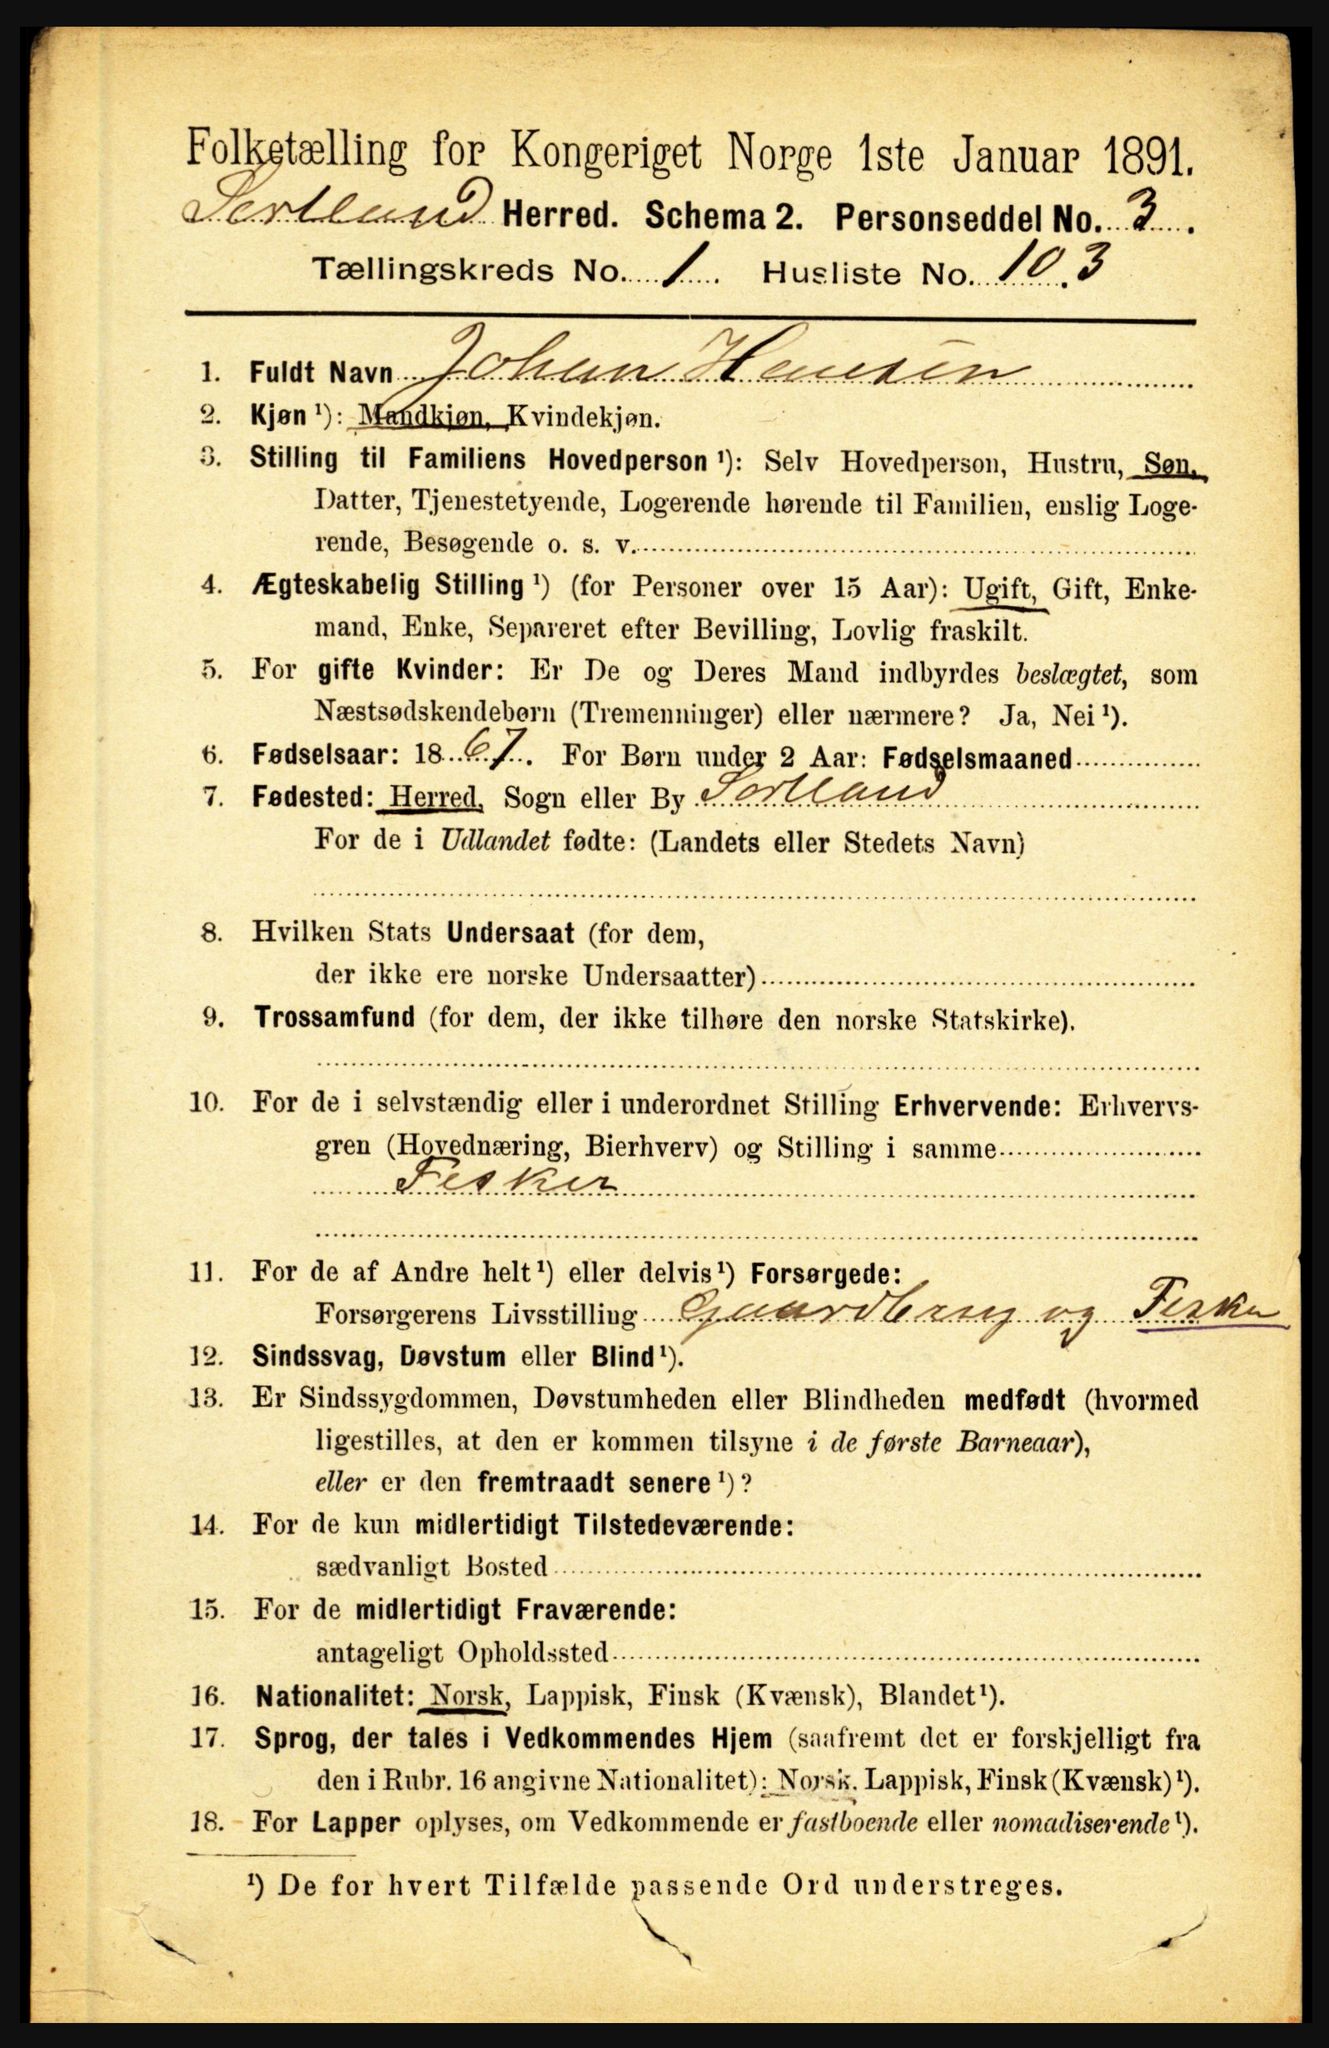 Folketælling for Kongeriget Norge 1ste Januar 1891.
Sortland Herred. Schema 2. Personseddel No. 3.
Tællingskreds No. 1. Husliste No. 103
1. Fuldt Navn Johan Hansen
2. Kjøn ¹): Mandkjøn, Kvindekjøn.
3. Stilling til Familiens Hovedperson ¹): Selv Hovedperson, Hustru, Søn,
Datter, Tjenestetyende, Logerende hørende til Familien, enslig Loge-
rende, Besøgende o. s. v.
4. Ægteskabelig Stilling ¹) (for Personer over 15 Aar): Ugift, Gift, Enke-
mand, Enke, Separeret efter Bevilling, Lovlig fraskilt.
5. For gifte Kvinder: Er De og Deres Mand indbyrdes beslægtet, som
Næstsødskendebørn (Tremenninger) eller nærmere? Ja, Nei ¹).
6. Fødselsaar: 1867. For Børn under 2 Aar: Fødselsmaaned
7. Fødested: Herred, Sogn eller By Sortland
For de i Udlandet fødte: (Landets eller Stedets Navn)
8. Hvilken Stats Undersaat (for dem,
der ikke ere norske Undersaatter)
9. Trossamfund (for dem, der ikke tilhøre den norske Statskirke).
10. For de i selvstændig eller i underordnet Stilling Erhvervende: Erhvervs-
gren (Hovednæring, Bierhverv) og Stilling i samme
Fisker
11. For de af Andre helt ¹) eller delvis ¹) Forsørgede:
Forsørgerens Livsstilling Gaardbrug og Fisker
12. Sindssvag, Døvstum eller Blind ¹).
13. Er Sindssygdommen, Døvstumheden eller Blindheden medfødt (hvormed
ligestilles, at den er kommen tilsyne i de første Barneaar),
eller er den fremtraadt senere ¹)?
14. For de kun midlertidigt Tilstedeværende:
sædvanligt Bosted
15. For de midlertidigt Fraværende:
antageligt Opholdssted
16. Nationalitet: Norsk, Lappisk, Finsk (Kvænsk), Blandet ¹).
17. Sprog, der tales i Vedkommendes Hjem (saafremt det er forskjelligt fra
den i Rubr. 16 angivne Nationalitet): Norsk, Lappisk, Finsk (Kvænsk) ¹).
18. For Lapper oplyses, om Vedkommende er fastboende eller nomadiserende ¹).
¹) De for hvert Tilfælde passende Ord understreges.